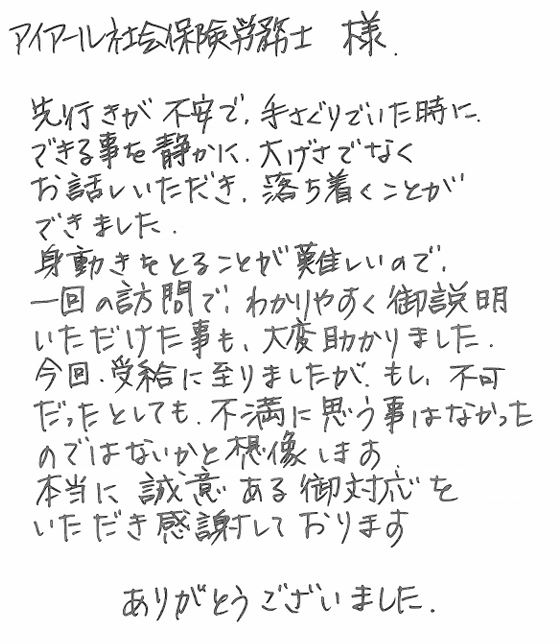 アイアール社会保険労務士 様.
先行きが不安で,手さぐりでいた時に,
できる事を静かに,大げさでなく
お話しいただき,落ち着くことが
できました.
身動きをとることが難しいので,
一回の訪問で,わかりやすく御説明
いただけた事も,大変助かりました.
今回,受給に至りましたが,もし,不可
だったとしても,不満に思う事はなかった
のではないかと想像します,
本当に誠意ある御対応を
いただき感謝しております
ありがとうございました.